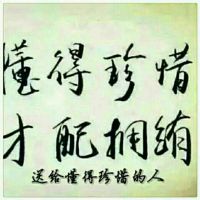 懂得珍惜
才配拥有
送给懂得珍惜的人